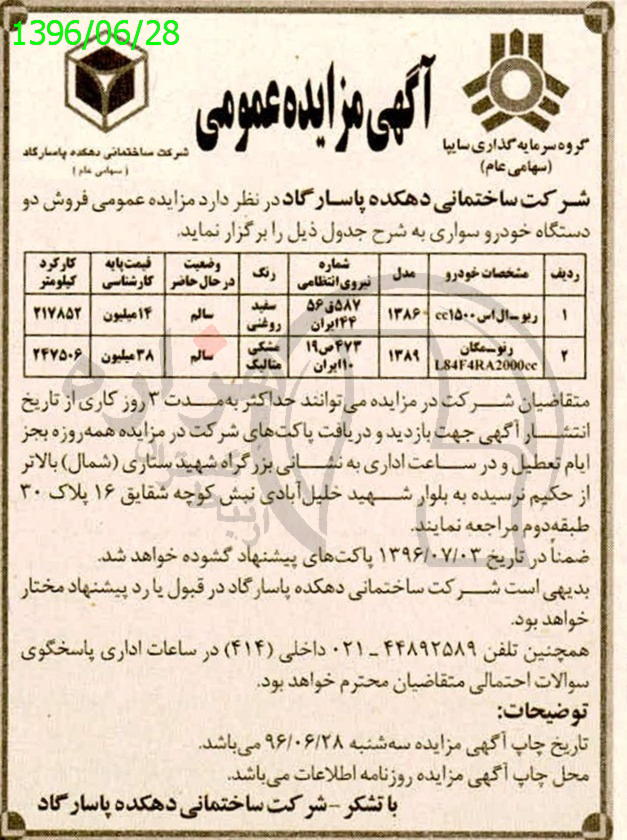 1396/06/28
شرکت ساختمانی دهکده پاسارگاد
(سهامی عام)
آگهی مزایده عمومی
گروه سرمایه گذاری سایپا
(سهامی عام)
شرکت ساختمانی دهکده پاسارگاد در نظر دارد مزایده عمومی فروش دو
دستگاه خودرو سواری به شرح جدول ذیل را برگزار نماید.
ردیف | مشخصات خودرو | مدل | شماره نیروی انتظامی | رنگ | وضعیت در حال حاضر | قیمت پایه کارشناسی | کارکرد کیلومتر
۱ | ریو-ال اس cc۱۵۰۰ | ۱۳۸۶ | ۵۸۷ق۵۶ ۴۴ایران | سفید روغنی | سالم | ۱۴میلیون | ۲۱۷۸۵۲
۲ | رنو-مگان L84F4RA2000cc | ۱۳۸۹ | ۴۷۳ص۱۹ ۱۰ایران | مشکی متالیک | سالم | ۳۸میلیون | ۲۴۷۵۰۶
متقاضیان شرکت در مزایده می‌توانند حداکثر به‌مدت ۳ روز کاری از تاریخ
انتشار آگهی جهت بازدید و دریافت پاکت‌های شرکت در مزایده همه‌روزه بجز
ایام تعطیل و در ساعت اداری به نشانی بزرگراه شهید ستاری (شمال) بالاتر
از حکیم نرسیده به بلوار شهید خلیل‌آبادی نبش کوچه شقایق ۱۶ پلاک ۳۰
طبقه‌دوم مراجعه نمایند.
ضمناً در تاریخ ۱۳۹۶/۰۷/۰۳ پاکت‌های پیشنهاد گشوده خواهد شد.
بدیهی است شرکت ساختمانی دهکده پاسارگاد در قبول یا رد پیشنهاد مختار
خواهد بود.
همچنین تلفن ۴۴۸۹۲۵۸۹ ـ ۰۲۱ داخلی (۴۱۴) در ساعات اداری پاسخگوی
سوالات احتمالی متقاضیان محترم خواهد بود.
توضیحات:
تاریخ چاپ آگهی مزایده سه‌شنبه ۹۶/۰۶/۲۸ می‌باشد.
محل چاپ آگهی مزایده روزنامه اطلاعات می‌باشد.
با تشکر - شرکت ساختمانی دهکده پاسارگاد